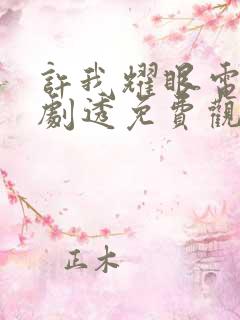 許我耀眼電
劇透免費觀
正木